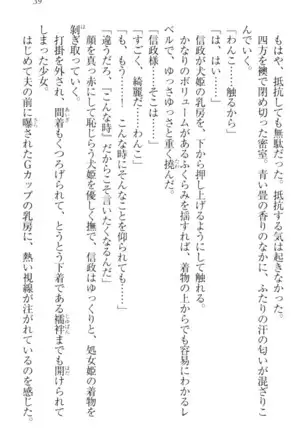 39
もはや、抵抗しても無駄だった。抵抗する
んでいく。
四方を襖で閉め切った密室。青い畳の香りのなかに、ふたりの汗の匂いが混ざりこ
「わんこ……触るから」
「はい……」
信政が犬姫の乳房を、下から押し上げるようにして触れる。
かなりのボリュームがあるふくらみを揺すれば、着物の上からでも容易にわかるレ
ベルで、ゆっさゆっさと重く撓んだ。
「信政様……そこは……」
「すごく、綺麗だ……わんこ」
「も、もう……！ こんな時にそんなことを仰られても……」
「違うだろ。『こんな時』だからこそ言いたくなるんだ」
顔を真っ赤にして恥じらう犬姫を優しく撫で、信政はゆっくりと、処女姫の着物を
剝ぎ取っていく。
打掛を外され、間着もくつろげられて、とうとう下着である襦袢までも開けられて
しまった少女。
はじめて夫の前に曝されたGカップの乳房に、熱い視線が注がれているのを感じた。